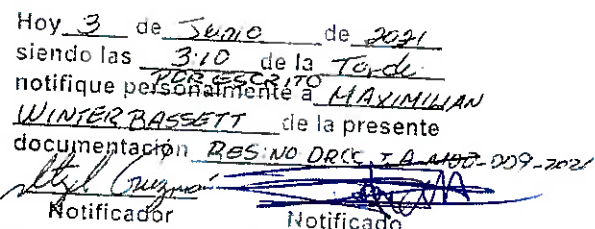 Hoy 3 de Junio de 2021
siendo las 3:10 de la Tarde
POR ESCRITO
notifique personalmente a MAXIMILIAN
WINTER BASSETT de la presente
documentación RES. NO DRCC IA -009-2021
Guzmán
Notificador Notificado